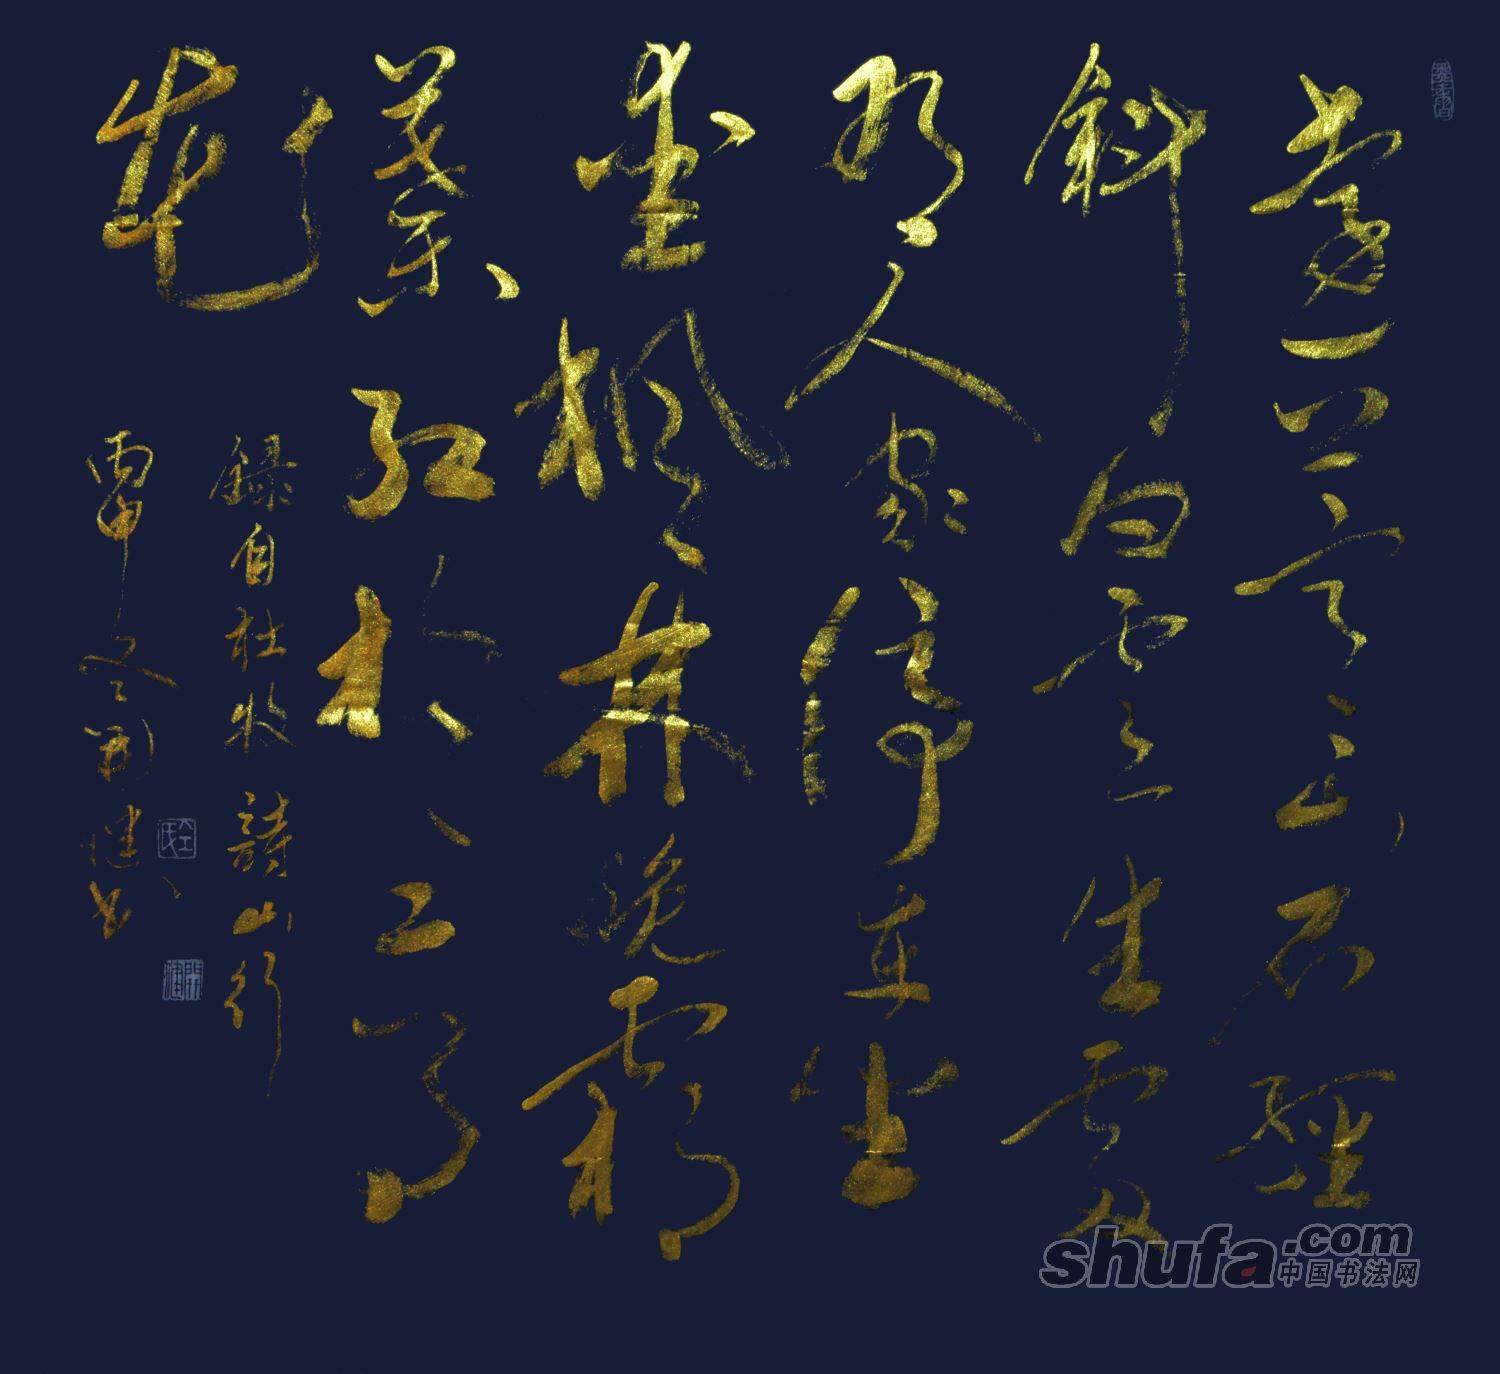 遠上寒山石徑
斜白雲生處
有人家停車坐
愛楓林晚霜
葉紅於二月
花
錄自杜牧詩山行
丙申冬開健書
shufa.com
中国书法网